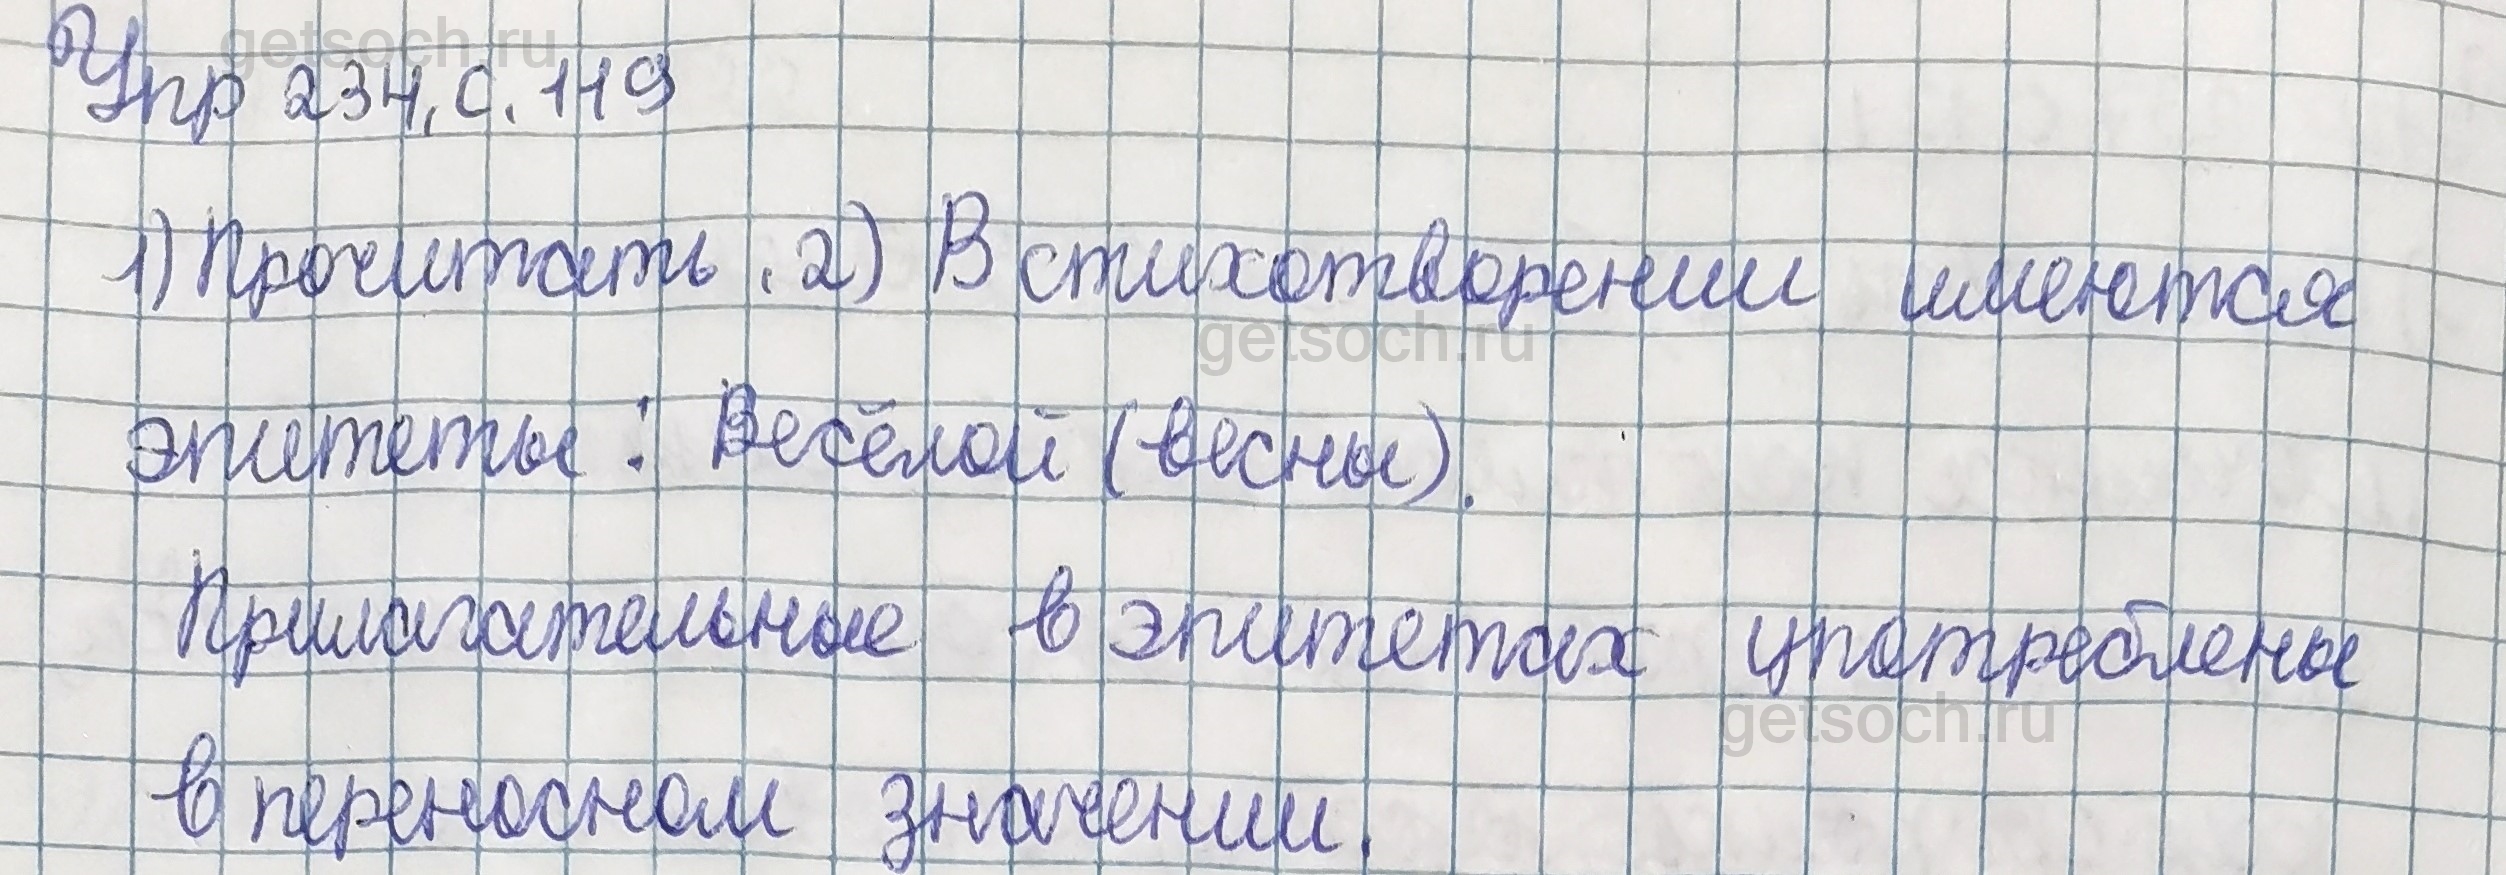 getsoch.ru
Упр 234, с. 119
1) Прочитать. 2) В стихотворении имеются
getsoch.ru
эпитеты: Весёлой (весны).
Прилагательные в эпитетах употреблены
getsoch.ru
в переносном значении.